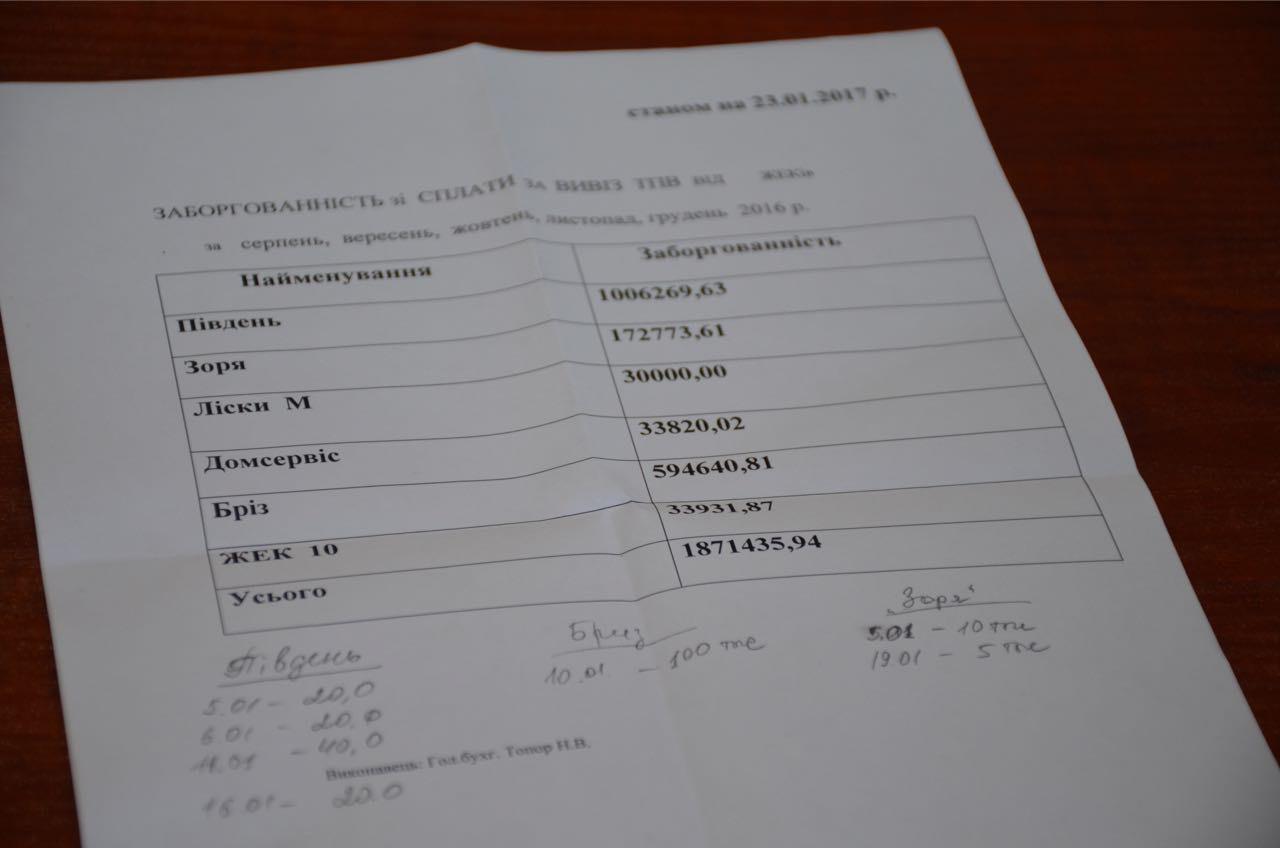 станом на 23.01.2017 р.
ЗАБОРГОВАННІСТЬ зі СПЛАТИ ЗА ВИВІЗ ТПВ від жеків
за серпень, вересень, жовтень, листопад, грудень 2016 р.
Найменування Заборгованність
Південь 1006269,63
Зоря 172773,61
Ліски М 30000,00
Домсервіс 33820,02
Бріз 594640,81
ЖЕК 10 33931,87
Усього 1871435,94
Південь
5.01 - 20,0
6.01 - 20.0
11.01 - 40,0
16.01 - 20.0
Бриз
10.01. - 100 тис
„Зоря"
5.01 - 10 тис
19.01 - 5 тис
Виконавець: Гол.бухг. Топор Н.В.